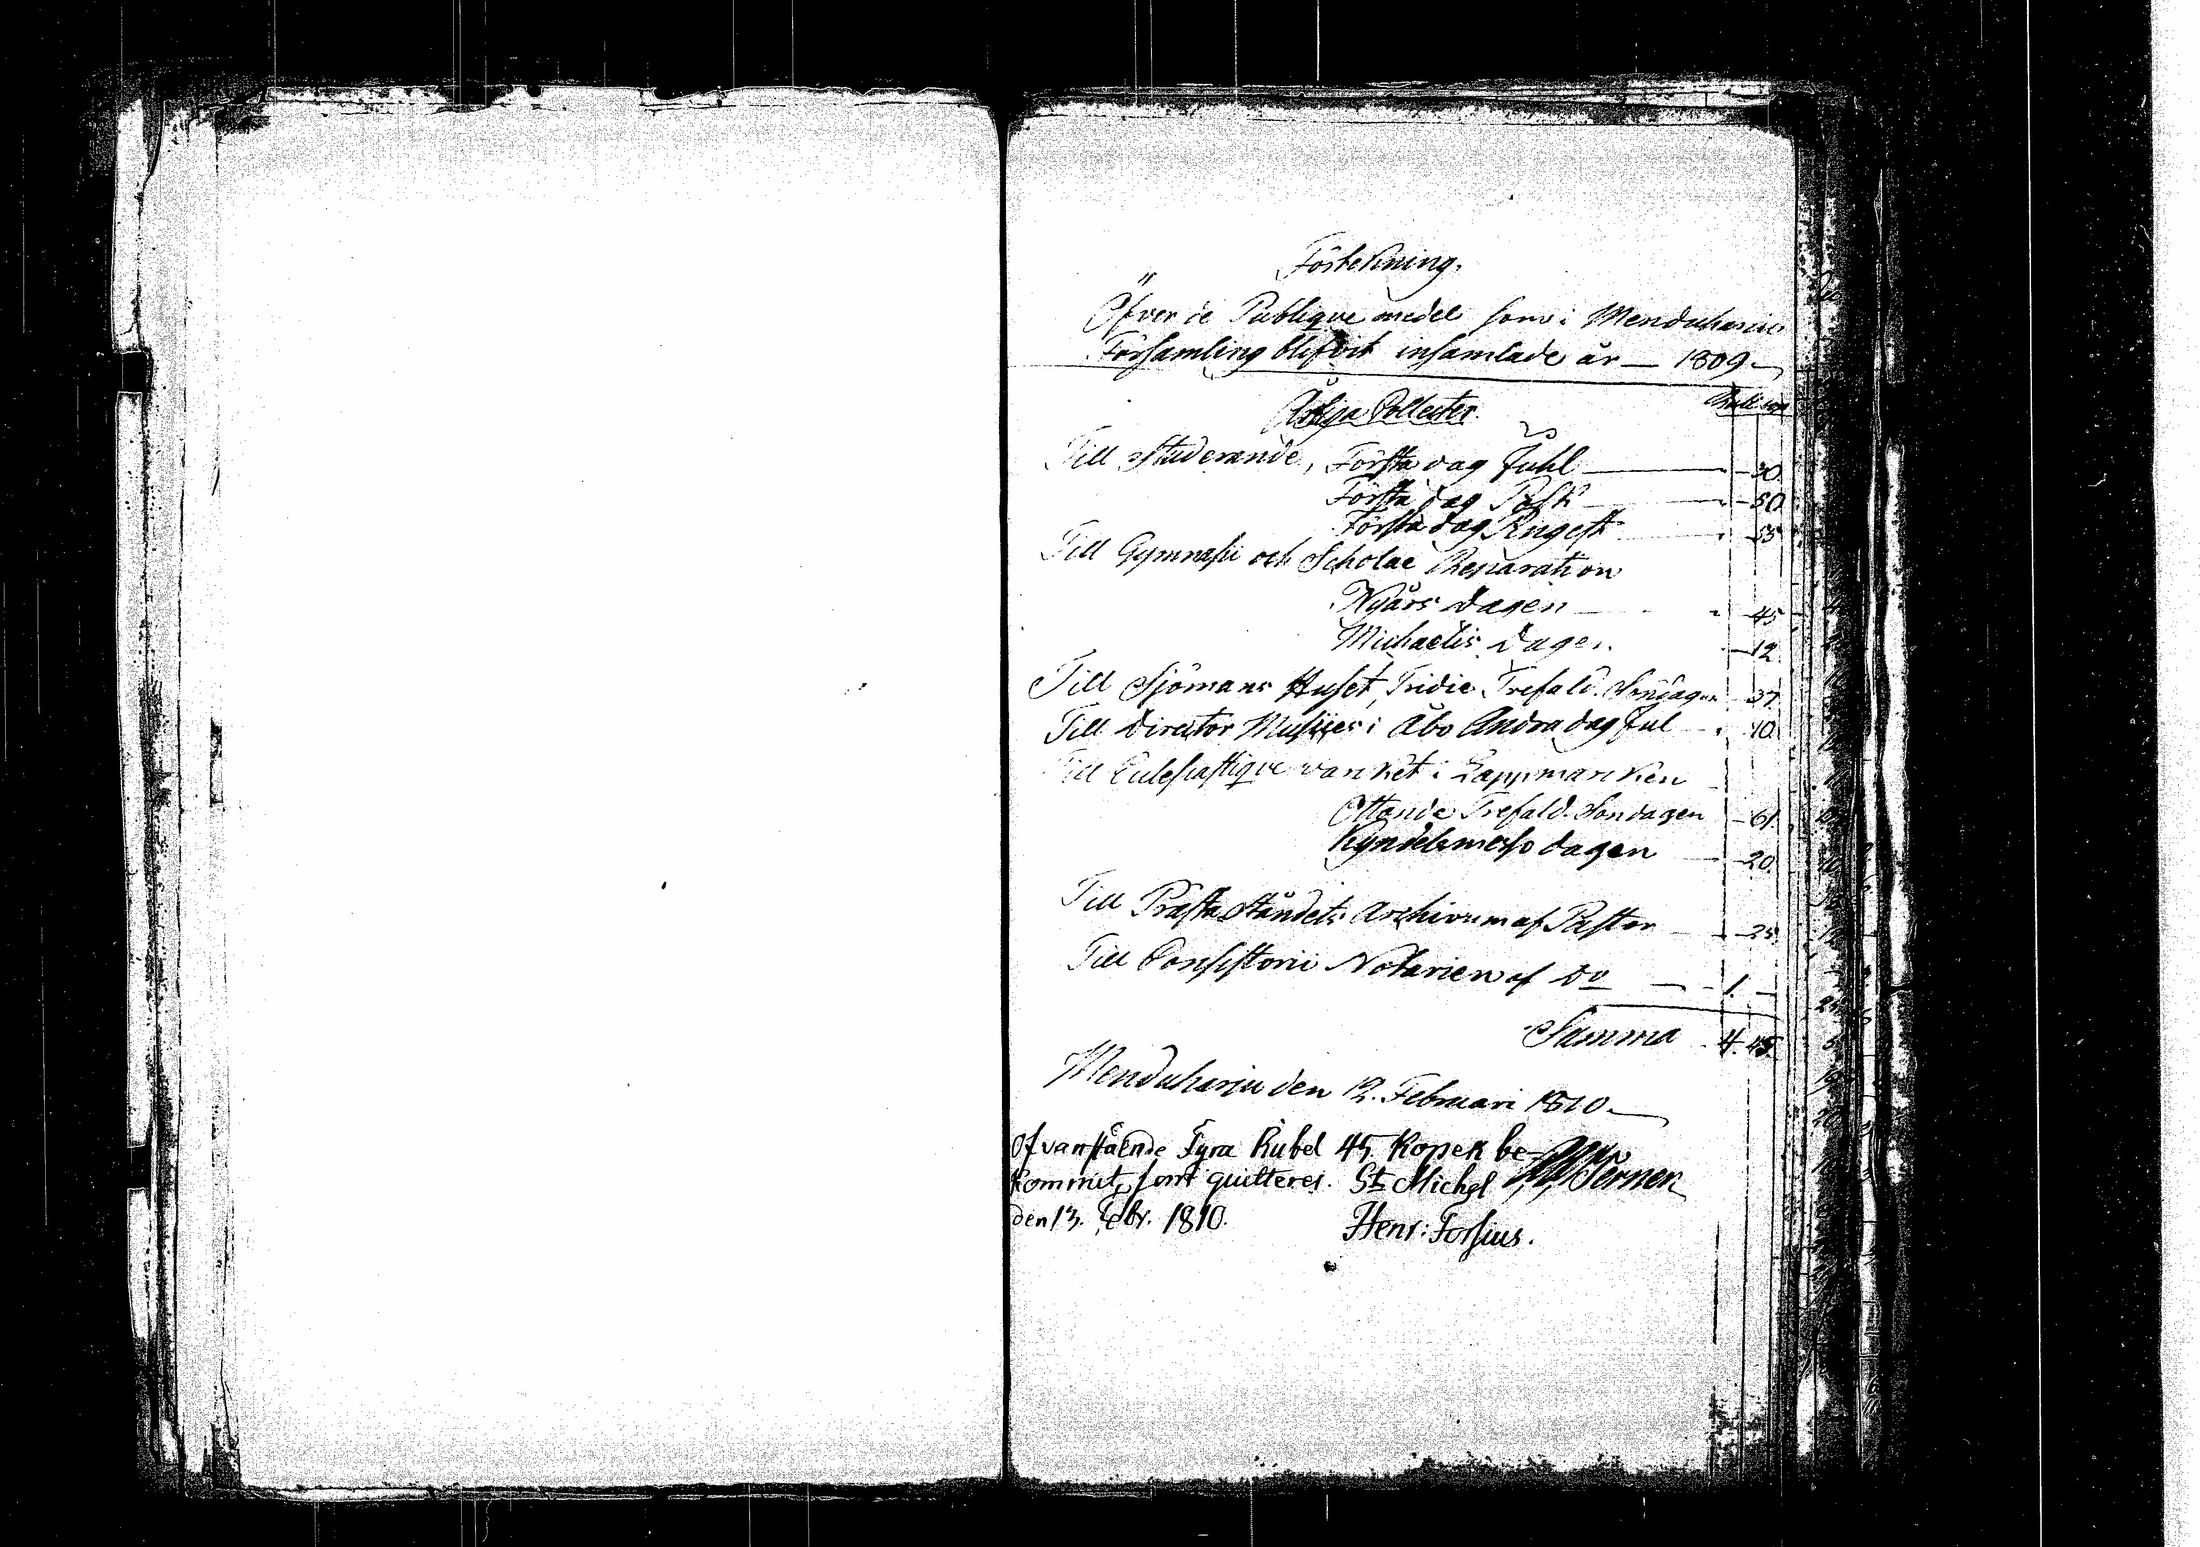 Förtekning.
Öfver de Publique medel som i Menduharju
Församling blifvit insamlade år — 1809 —
Årliga Collecter.
Till Studerande, Första dag Juhl — 30
Första dag Påsk — 50
Första dag Pingest
Till Gymnasii och Scholae Reparation
Nyårs dagen — 45
Michaelis dagen — 12
Till Sjömans Huset, Tridie Trefald. Söndagen 37
Till Director Musices i Åbo Andra dag Jul 40
Till Eclesiastique värcket i Lappmarcken
Ottonde Trefald. Söndagen — 61
Kyndelsmesso dagen — 20
Till Prästa Ståndets Archivum af Pastor — 25
Till Consistorii Notarien af Do — 1. —
Summa 4. 45.
Menduharju den 12. Februari 1810 —
Ofvanstående Fyra Rubel 45 Kopek be-
kommit, som quitteres. St Michel
den 13. Febr. 1810. Henr: Forsius.